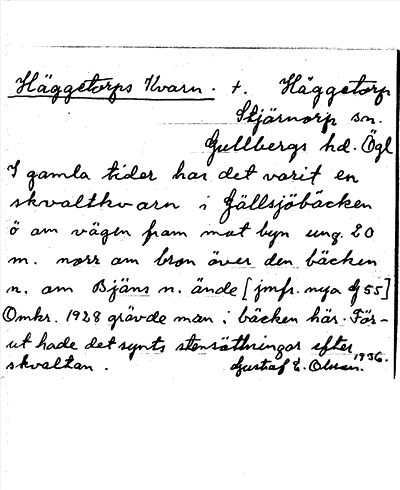 Häggetorps Kvarn. t. Häggetorp
Stjärnorp sn.
Gullbergs hd. Ögl
I gamla tider har det varit en
skvaltkvarn i Gällsjöbäcken
ö om vägen fram mot byn ung. 20
m. norr om bron över den bäcken
n. om Bjäns n. ände [jmfr. nya G 55]
Omkr. 1928 grävde man i bäcken här. För-
ut hade det synts stensättningar efter
skvaltan. Gustaf E. Olsson. 1936.